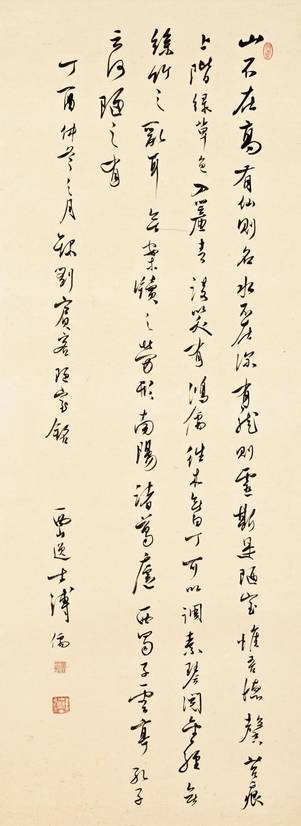 山不在高有仙則名水不在深有龍則靈斯是陋室惟吾德馨苔痕
上階綠草色入簾青談笑有鴻儒往來無白丁可以調素琴閱金經無
絲竹之亂耳無案牘之勞形南陽諸葛廬西蜀子雲亭孔子
云何陋之有
丁酉仲之月錄劉賓客陋室銘 西山逸士溥儒